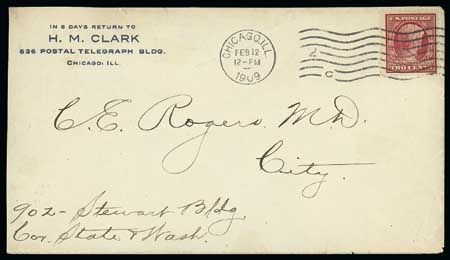 IN 5 DAYS RETURN TO
H. M. CLARK
636 POSTAL TELEGRAPH BLDG.
CHICAGO, ILL.
CHICAGO, ILL.
FEB 12
12-PM
1909
2
C
U.S. POSTAGE
TWO CENTS
C. E. Rogers, M.D.
City.
902 - Stewart Bldg.
Cor. State & Wash.